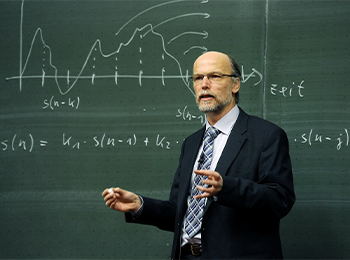 s(n-k)
s(n-
Zeit
s(n) = k₁ · s(n-1) + k₂ ·
· s(n-j)